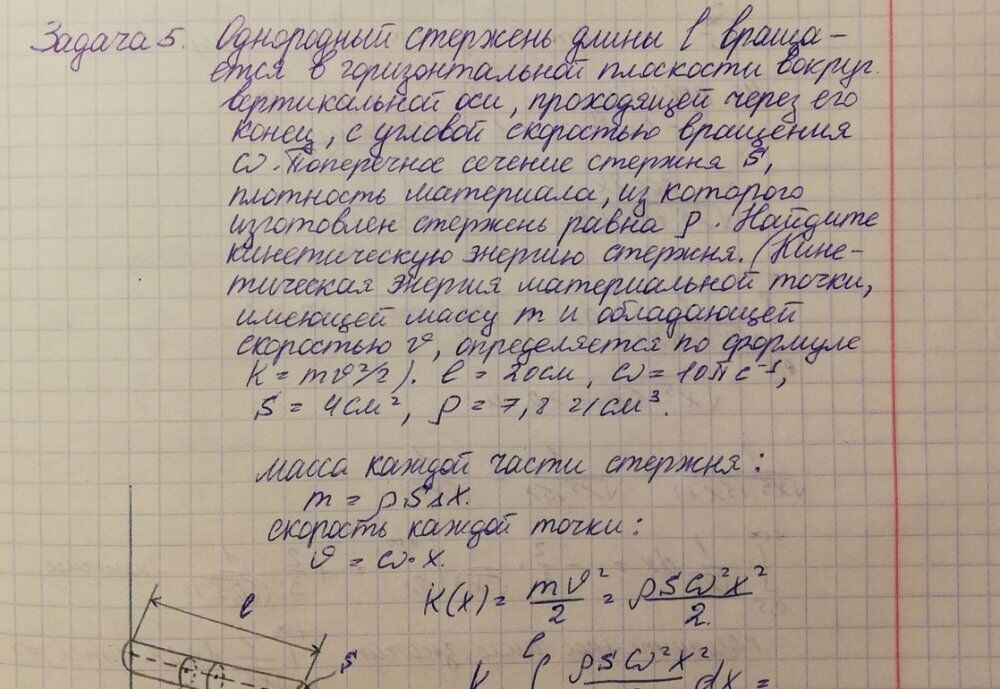 Задача 5. Однородный стержень длины l враща-
ется в горизонтальной плоскости вокруг
вертикальной оси, проходящей через его
конец, с угловой скоростью вращения
ω. Поперечное сечение стержня S,
плотность материала, из которого
изготовлен стержень равна ρ. Найдите
кинетическую энергию стержня. (Кине-
тическая энергия материальной точки,
имеющей массу m и обладающей
скоростью v, определяется по формуле
K = mv²/2). l = 20см, ω = 10π c⁻¹,
S = 4см², ρ = 7,8 г/см³.
масса каждой части стержня:
m = ρSΔx.
скорость каждой точки:
v = ω·x.
K(x) = mv²/2 = ρSω²x²/2.
l
S
l
∫ ρSω²x² dx =